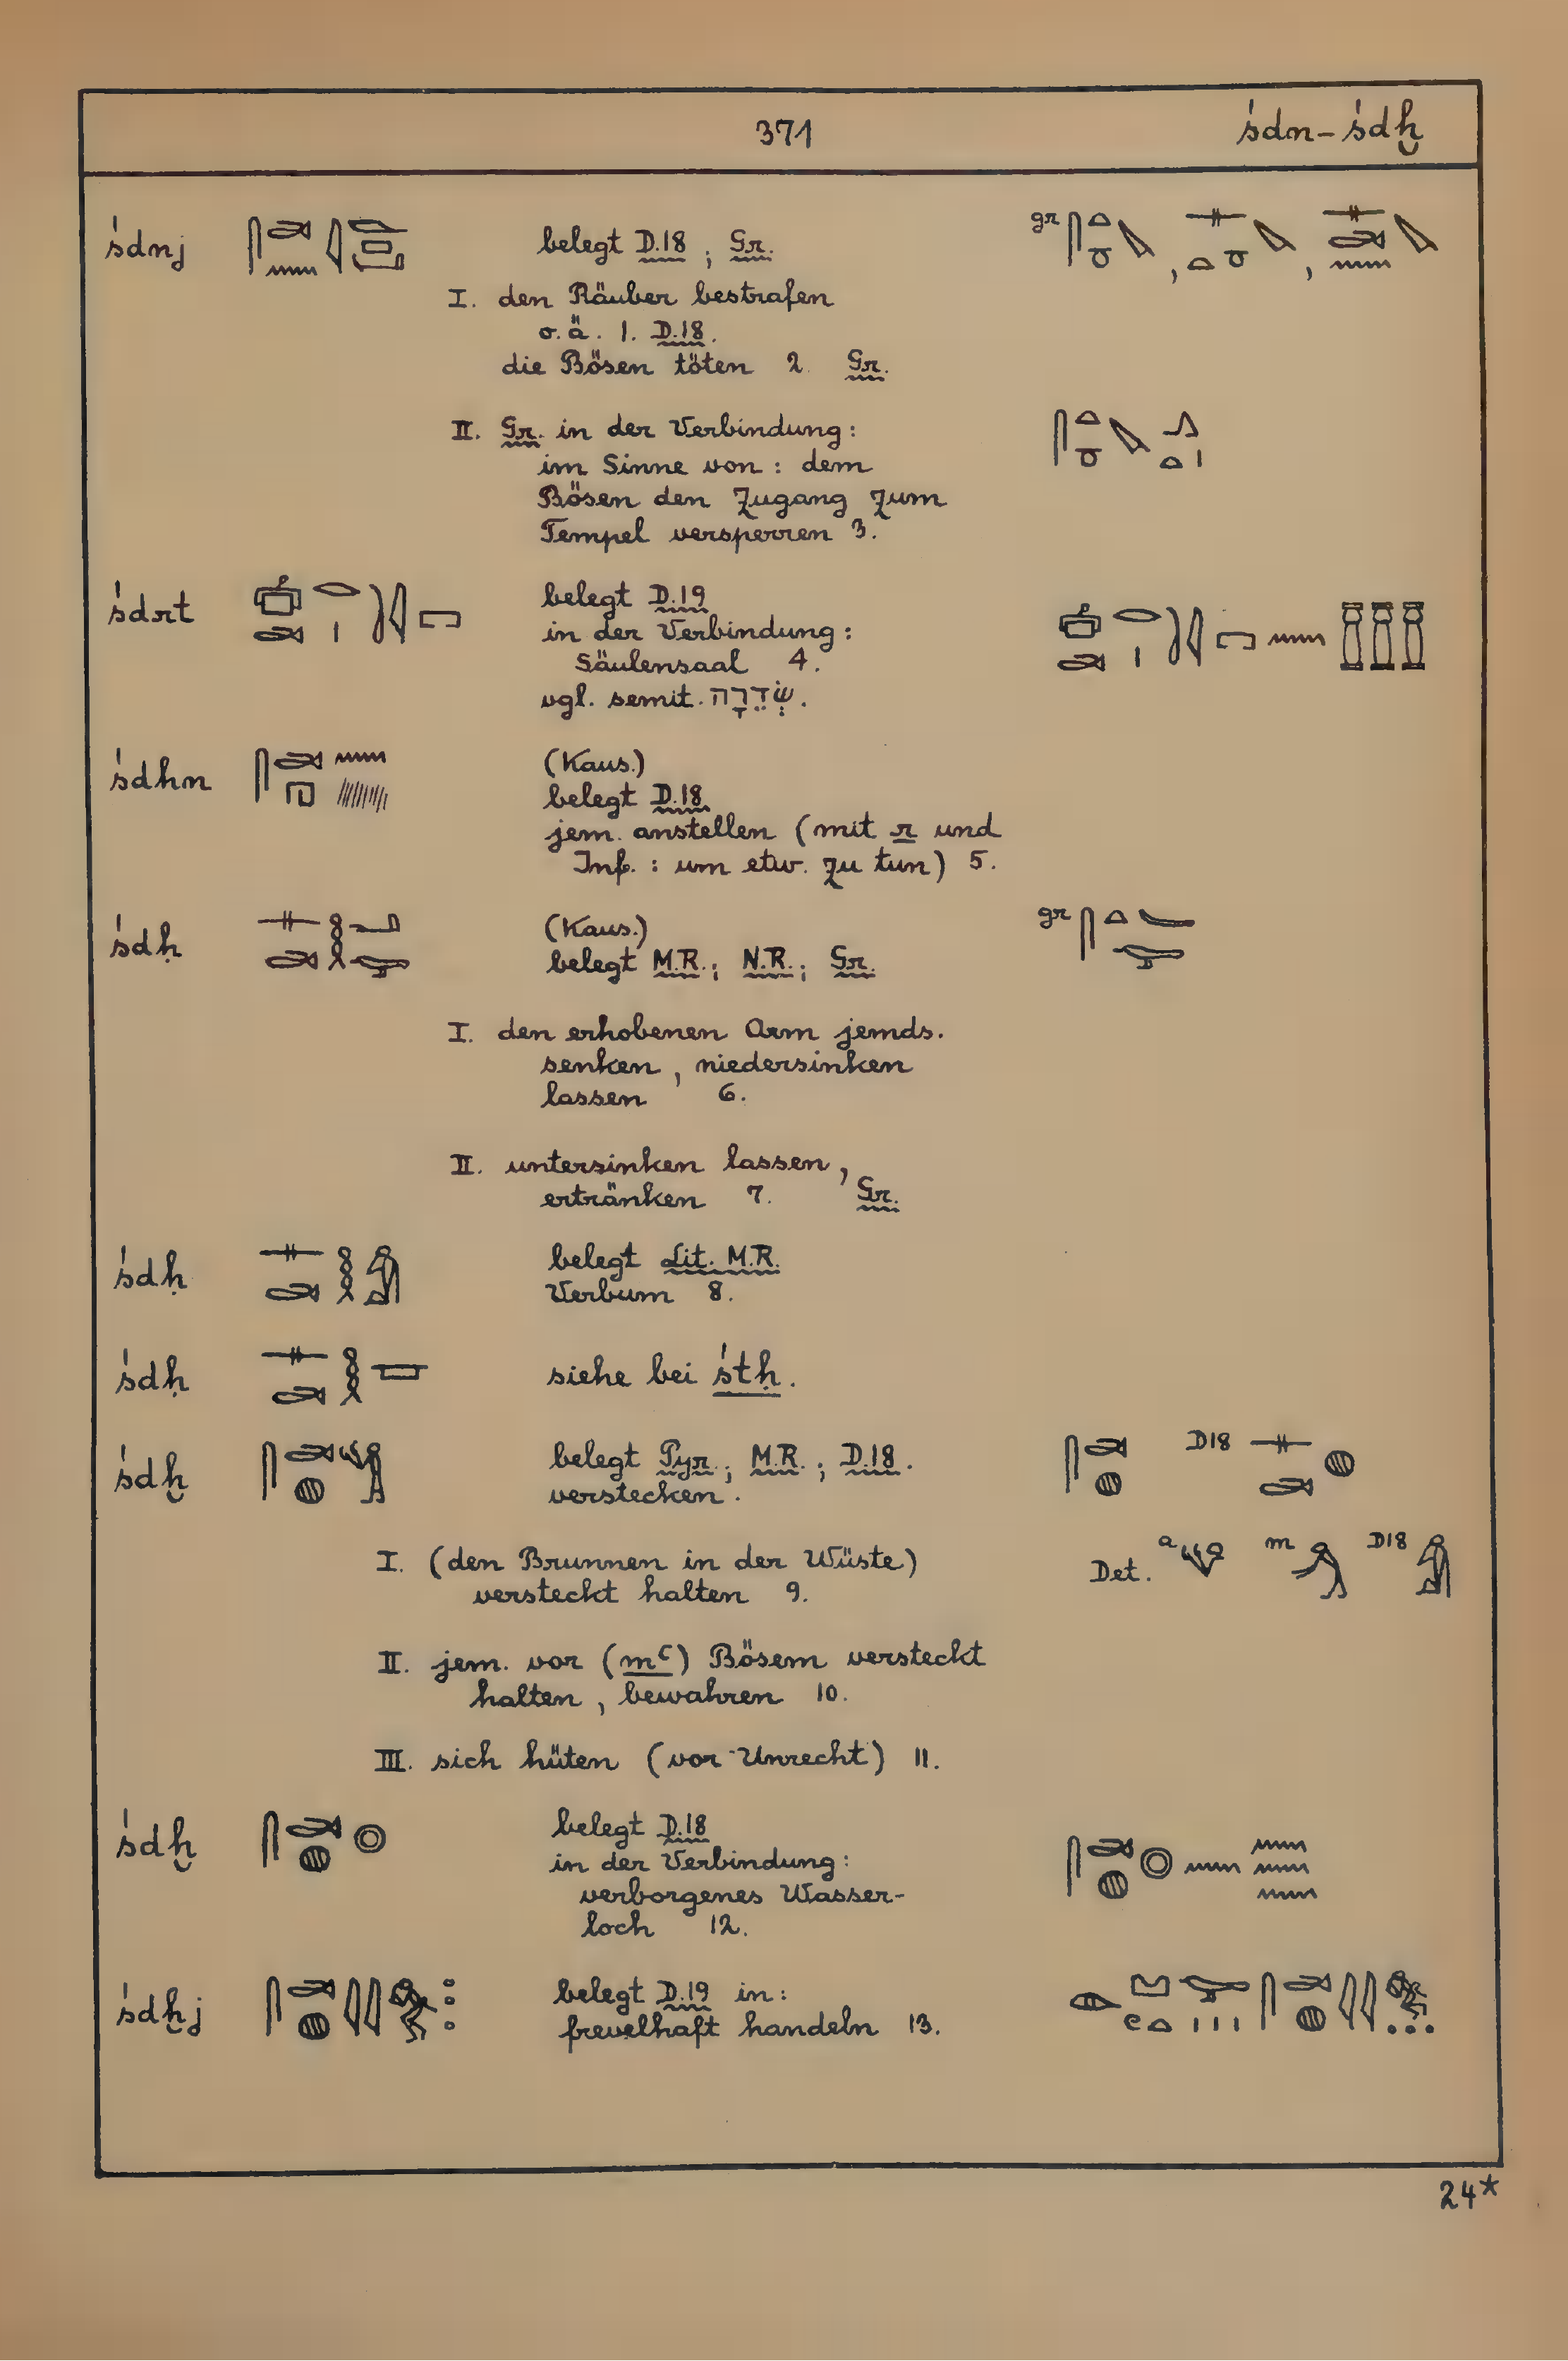 371
śdn – śdḫ
śdnj belegt D.18 ; Gr. gr
I. den Räuber bestrafen
o.ä. 1. D.18.
die Bösen töten 2. Gr.
II. Gr. in der Verbindung:
im Sinne von : dem
Bösen den Zugang zum
Tempel versperren 3.
śdrt belegt D.19
in der Verbindung:
Säulensaal 4.
vgl. semit. שְׂדֵרָה.
śdhn (Kaus.)
belegt D.18
jem. anstellen (mit r und
Inf. : um etw. zu tun) 5.
śdḥ (Kaus.) gr
belegt M.R. ; N.R. ; Gr.
I. den erhobenen Arm jemds.
senken , niedersinken
lassen 6.
II. untersinken lassen ,
ertränken 7. Gr.
śdḥ belegt Lit. M.R.
Verbum 8.
śdḥ siehe bei śtḥ.
śdḫ belegt Pyr. ; M.R. ; D.18. D18
verstecken.
I. (den Brunnen in der Wüste) Det. a m D18
versteckt halten 9.
II. jem. vor (mꜥ) Bösem versteckt
halten , bewahren 10.
III. sich hüten (vor Unrecht) 11.
śdḫ belegt D.18
in der Verbindung:
verborgenes Wasser-
loch 12.
śdḫj belegt D.19 in:
frevelhaft handeln 13.
24*